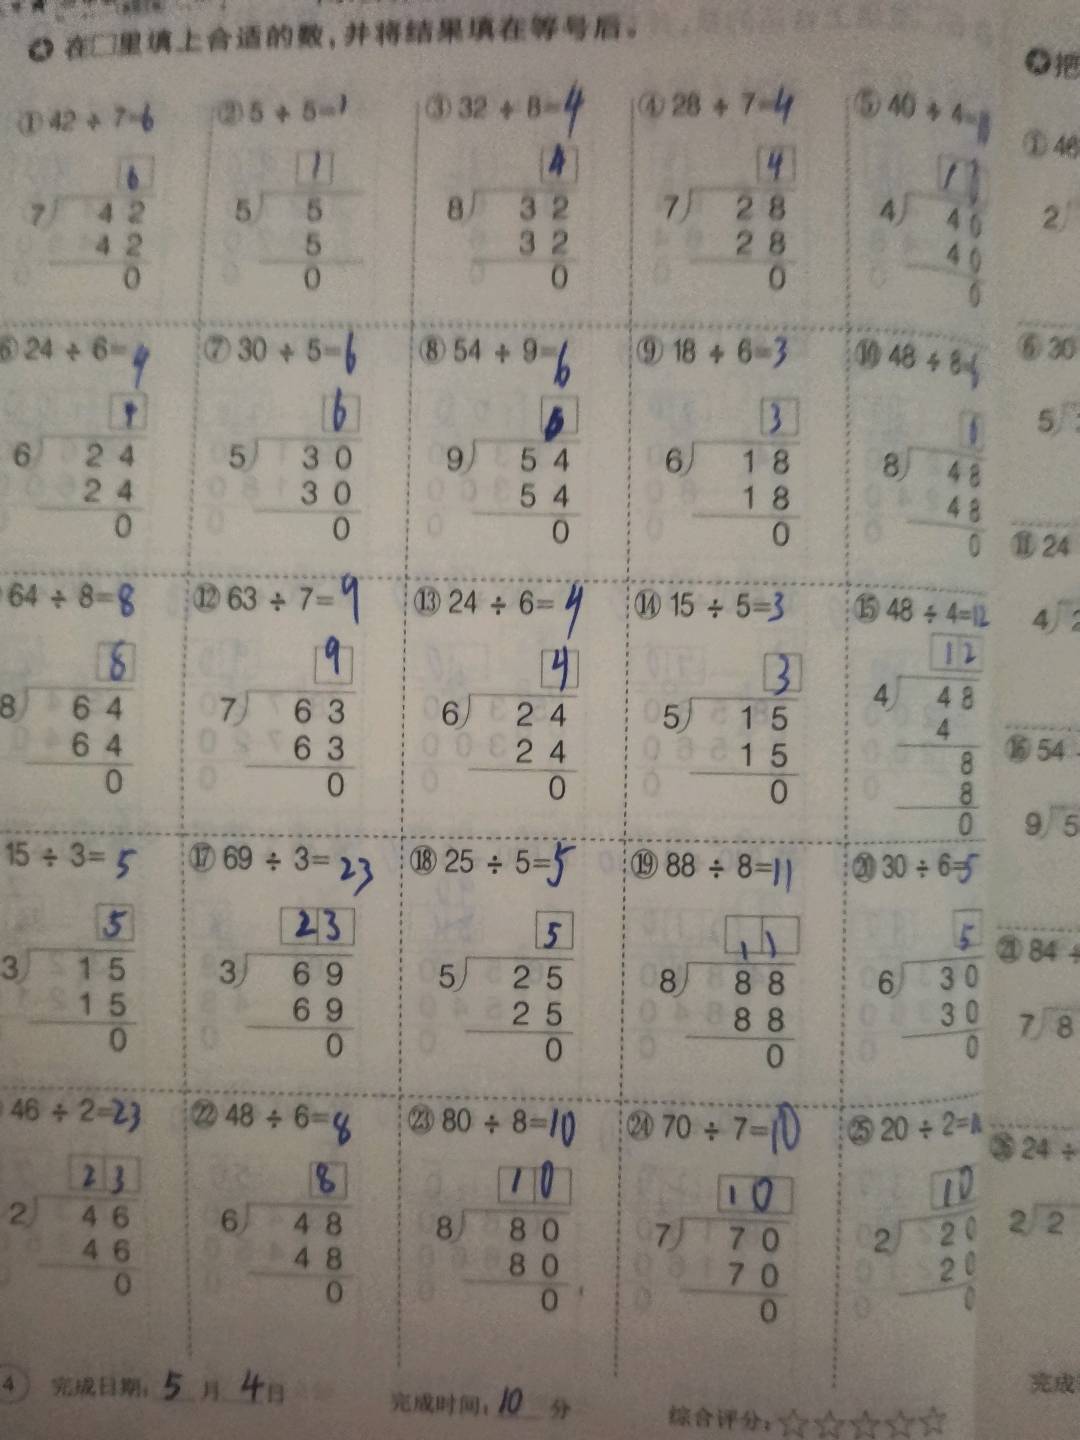 在□里填上合适的数，并将结果填在等号后。
① 42 ÷ 7=6
6
7) 4 2
4 2
0
② 5 ÷ 5=1
1
5) 5
5
0
③ 32 ÷ 8=4
4
8) 3 2
3 2
0
④ 28 ÷ 7=4
4
7) 2 8
2 8
0
⑤ 40 ÷ 4=10
1
4) 4 0
4 0
0
⑥ 24 ÷ 6=4
4
6) 2 4
2 4
0
⑦ 30 ÷ 5=6
6
5) 3 0
3 0
0
⑧ 54 ÷ 9=6
6
9) 5 4
5 4
0
⑨ 18 ÷ 6=3
3
6) 1 8
1 8
0
⑩ 48 ÷ 8=
8) 4 8
4 8
0
64 ÷ 8=8
8
8) 6 4
6 4
0
⑫ 63 ÷ 7=9
9
7) 6 3
6 3
0
⑬ 24 ÷ 6=4
4
6) 2 4
2 4
0
⑭ 15 ÷ 5=3
3
5) 1 5
1 5
0
⑮ 48 ÷ 4=12
1 2
4) 4 8
4
8
8
0
15 ÷ 3=5
5
3) 1 5
1 5
0
⑰ 69 ÷ 3=23
2 3
3) 6 9
6 9
0
⑱ 25 ÷ 5=5
5
5) 2 5
2 5
0
⑲ 88 ÷ 8=11
1 1
8) 8 8
8 8
0
⑳ 30 ÷ 6=5
5
6) 3 0
3 0
0
46 ÷ 2=23
2 3
2) 4 6
4 6
0
㉒ 48 ÷ 6=8
8
6) 4 8
4 8
0
㉓ 80 ÷ 8=10
1 0
8) 8 0
8 0
0
㉔ 70 ÷ 7=10
1 0
7) 7 0
7 0
0
㉕ 20 ÷ 2=
1 0
2) 2 0
2 0
0
4 完成日期：5月4日
完成时间：10分
综合评分：☆☆☆☆☆
把
① 46
2)
⑥ 30
5)
⑪ 24
4) 2
⑯ 54
9) 5
㉑ 84 ÷
7) 8
㉖ 24 ÷
2) 2
完成